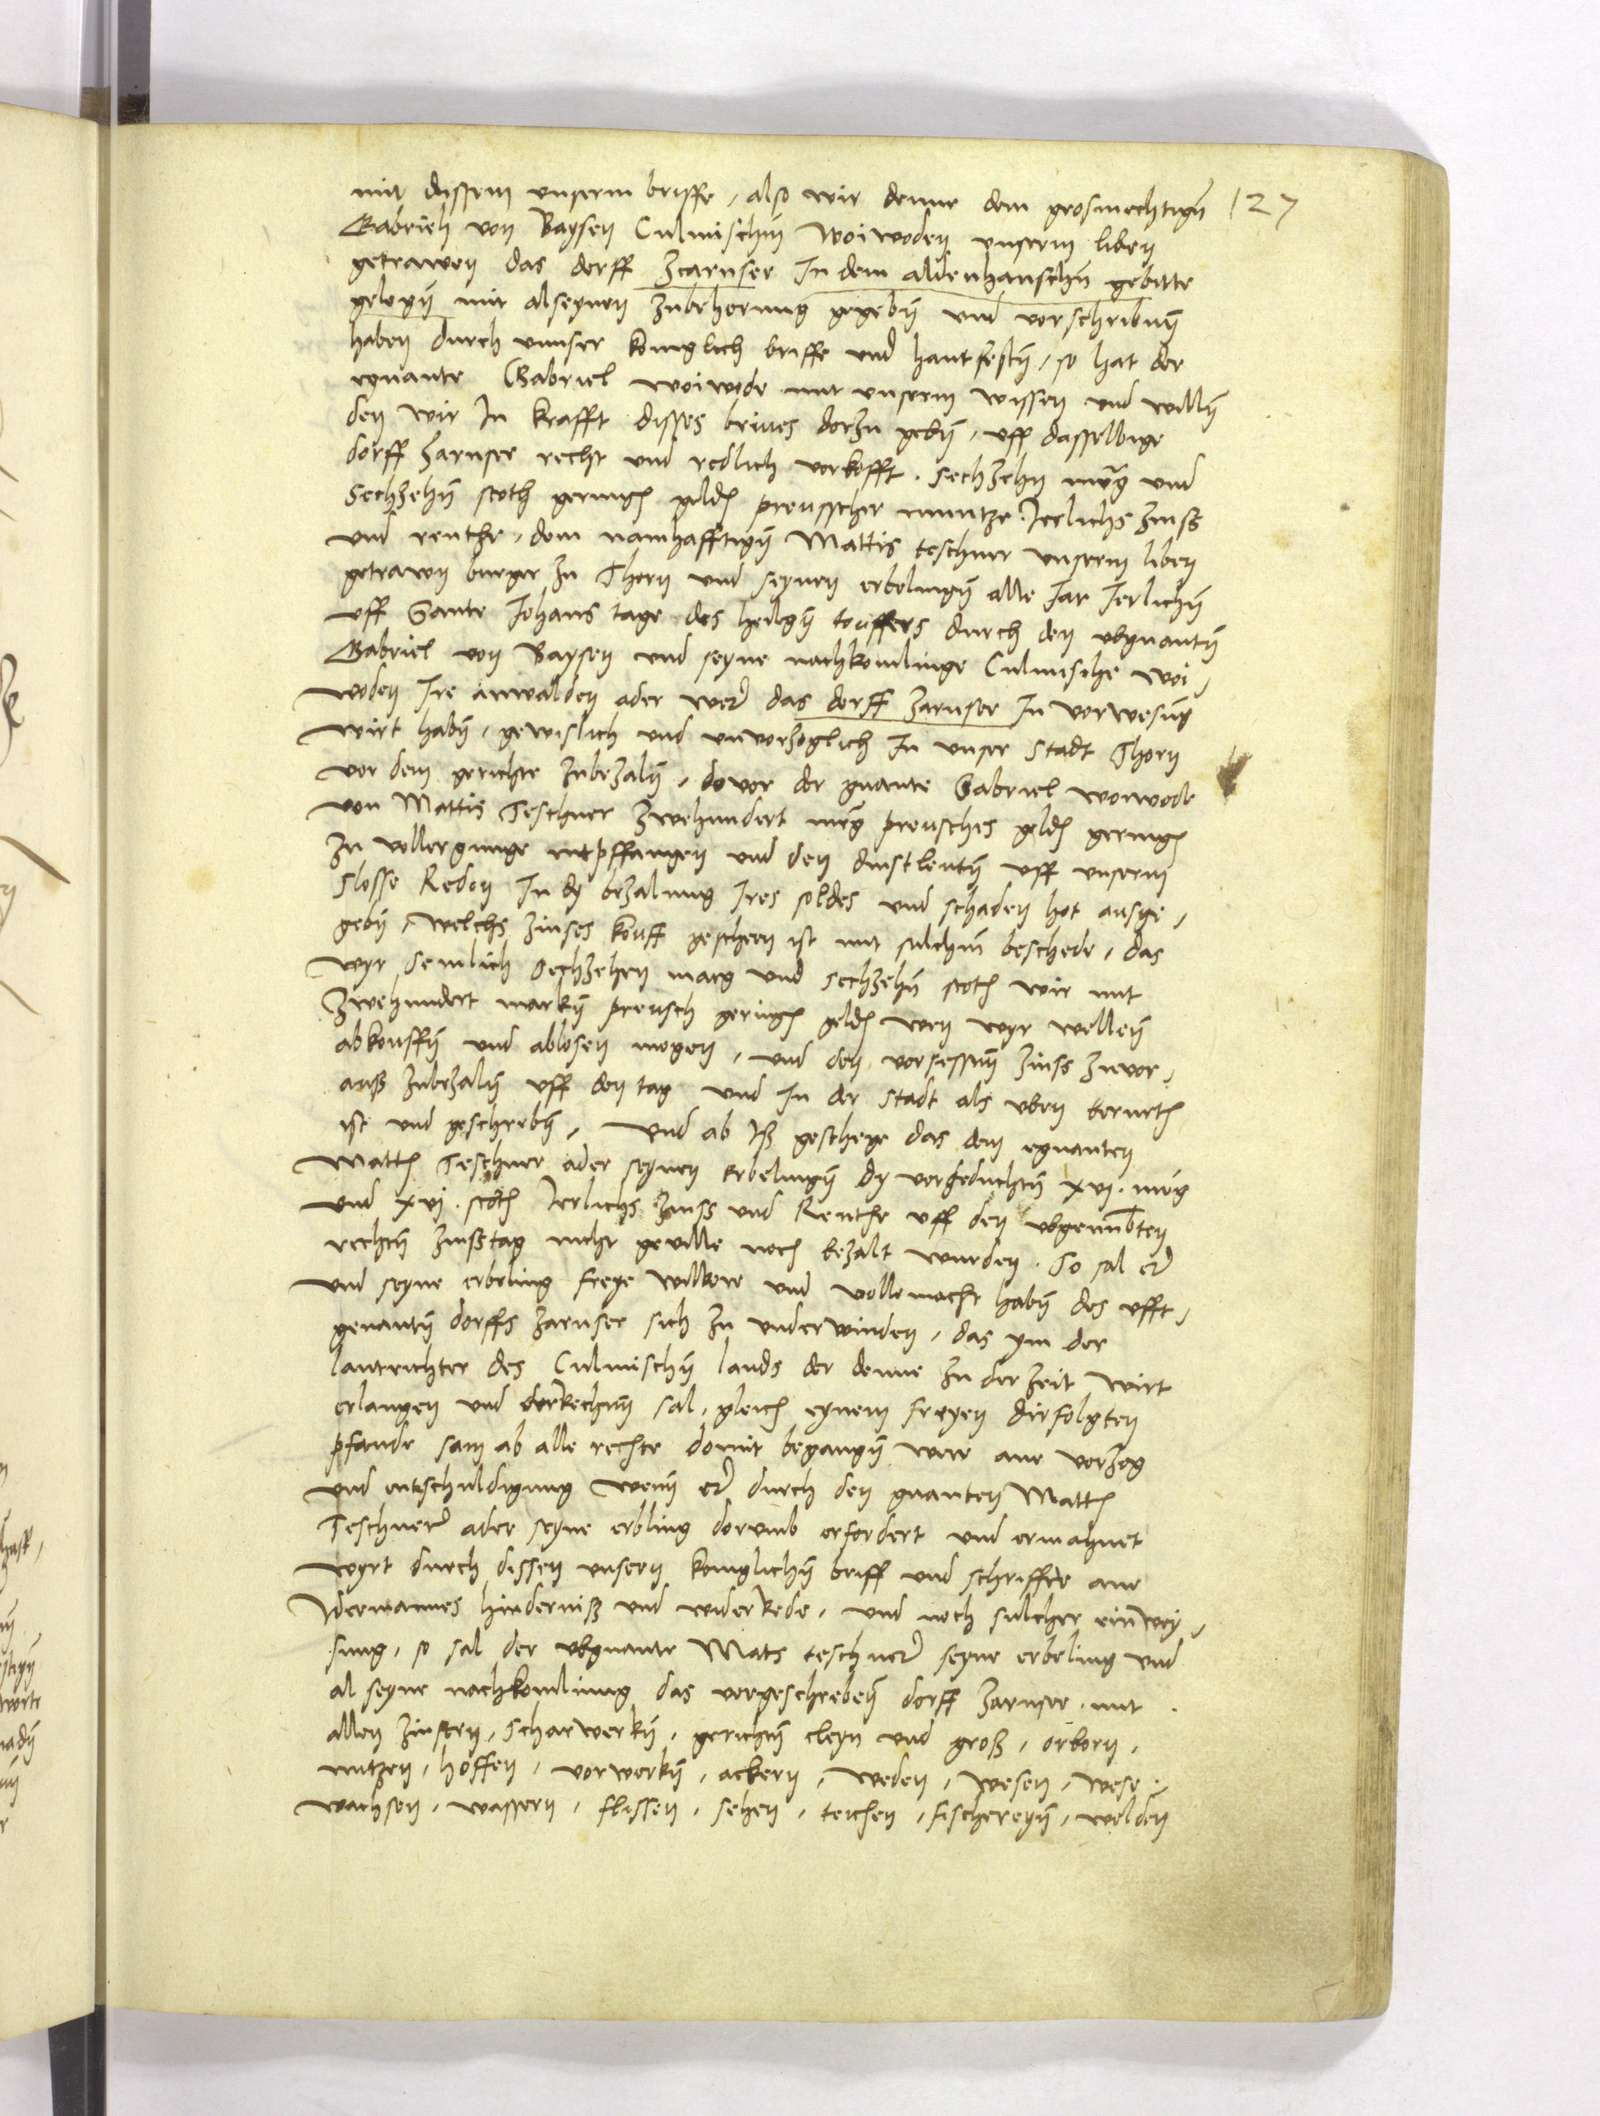 mit dissem unserm briffe, also wir denne dem grosmechtign 127
Gabrieln von Baysen Culmischen Woiwoden unserm liben
getrawen das dorff Zcarnser In dem aldenhauschen gebitte
gelegen mit alseynen zubehorung gegeben und vorschribnn
haben durch vnnser koniglich briffe und hantfesten, so hat der
egnante Gabriel woiwode mit unserm wissen und willen
den wir In krafft disses brives dorzu geben, uff dasselbige
dorff Zarnser recht und redlich vorkofft. sechzehn marg und
sechzehen scoth gering geld preusscher muntze Jerlichs zinss
und renthe, dem namhafftigen Mattis teschner unserm liben
getrawn burger zu Thorn und seynen erbelingen alle Jar Jerlichen
uff Sante Johans tage des heilgen touffers durch den obgnanten
Gabriel von Baysen und seyne nachkomlinge Culmische woi,
woden Ire anwalden ader wer das dorff Zarnser In vorwesung
wirt haben, gewislich und unvorzoglich In unser Stadt Thorn
vor dem gerichte zubezalen, dovor der gnante Gabriel woiwode
von Mattis Teschner zwehundert marg preusches geld gering
zu voller gnuge entpffangen und den dinstleuten uff unserm
Slosse Reden In dy bezalung Ires soldes und schaden hot ausge,
geben, welchs zinses kouff gescheen ist mit sulchem beschede, das
wyr semlich sechzehen marg und sechzehen scoth wir mit
Zwehundert marken preusch gering geld wen wyr wellen
abkouffen und ablosen mogen, und den vorsessnen zinss zuvor,
auss zubezalen uff den tag und In der Stadt als oben berurth
ist und geschreben, und ab Iss geschege das dem egnanten
Matth Teschner ader seynen erbelingen dy vorgedochten xvj. marg
und xvj. scoth Jerlichs zinss und Renthe uff den obgenumbten
rechten zinsstag nicht geville noch bezalt wurden. So sal er
und seyne erbeling freye willkore und vollemacht haben des offt,
genanten dorffs Zarnser sich zu underwinden, das ym der
lantrichter des Culmischen lands der denne zu der zeit wirt
erlangen und derkechnn sal, gleich eynem freyen dirfolgten
pfande sam ab alle rechte domit begangen were ane vorzog
und entschuldigung wenn er durch den gnanten Matth
Teschner ader seyne erbling dorumb erfordert und ermahnet
wyrt durch dissen unsern koniglichen briff und schriffte ane
Idermannes hinderniss und widerrede, und noch sulcher einwey,
sung, so sal der obgnante Mats teschner seyne erbeling und
al seyne nachkomlinng das vorgeschreben dorff Zarnser. mit
allen zinsern, scharwerken, gerichten cleyn und gross, orborn,
nutzen, hoffen, vorwerken, ackern, weden, wesen, wese,
wachsen, wassern, flissen, sehen, teichen, fischereyen, welden